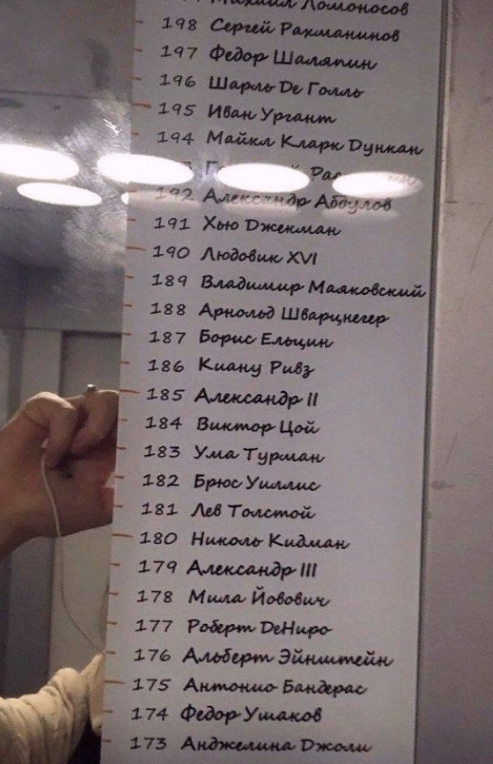 Михаил Ломоносов
198 Сергей Рахманинов
197 Федор Шаляпин
196 Шарль Де Голль
195 Иван Ургант
194 Майкл Кларк Дункан
192 Александр Абдулов
191 Хью Джекман
190 Людовик XVI
189 Владимир Маяковский
188 Арнольд Шварцнегер
187 Борис Ельцин
186 Киану Ривз
185 Александр II
184 Виктор Цой
183 Ума Турман
182 Брюс Уиллис
181 Лев Толстой
180 Николь Кидман
179 Александр III
178 Мила Йовович
177 Роберт ДеНиро
176 Альберт Эйнштейн
175 Антонио Бандерас
174 Федор Ушаков
173 Анджелина Джоли